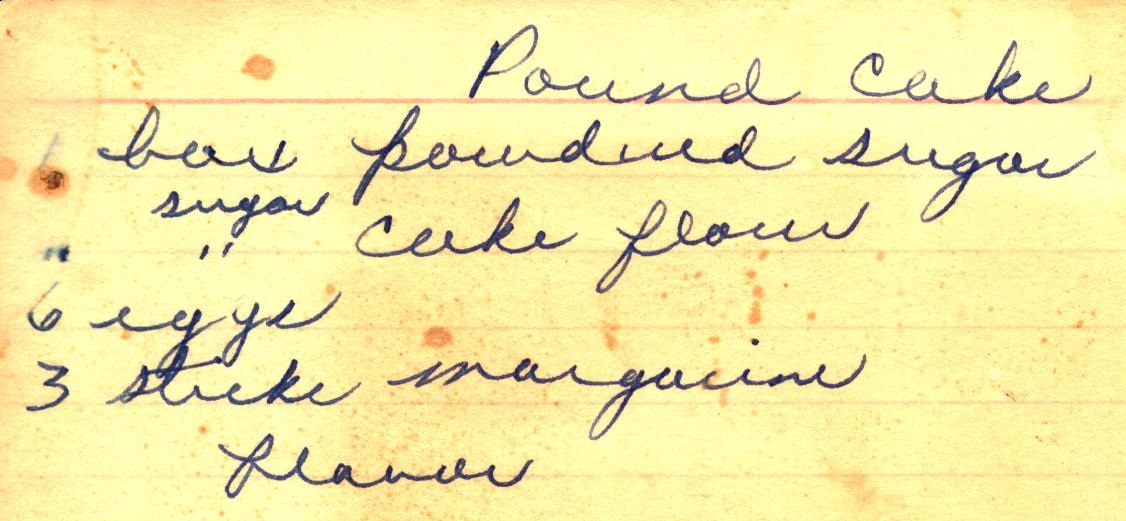 Pound Cake
1 box powdered sugar
sugar
" " cake flour
6 eggs
3 sticks margarine
flavor